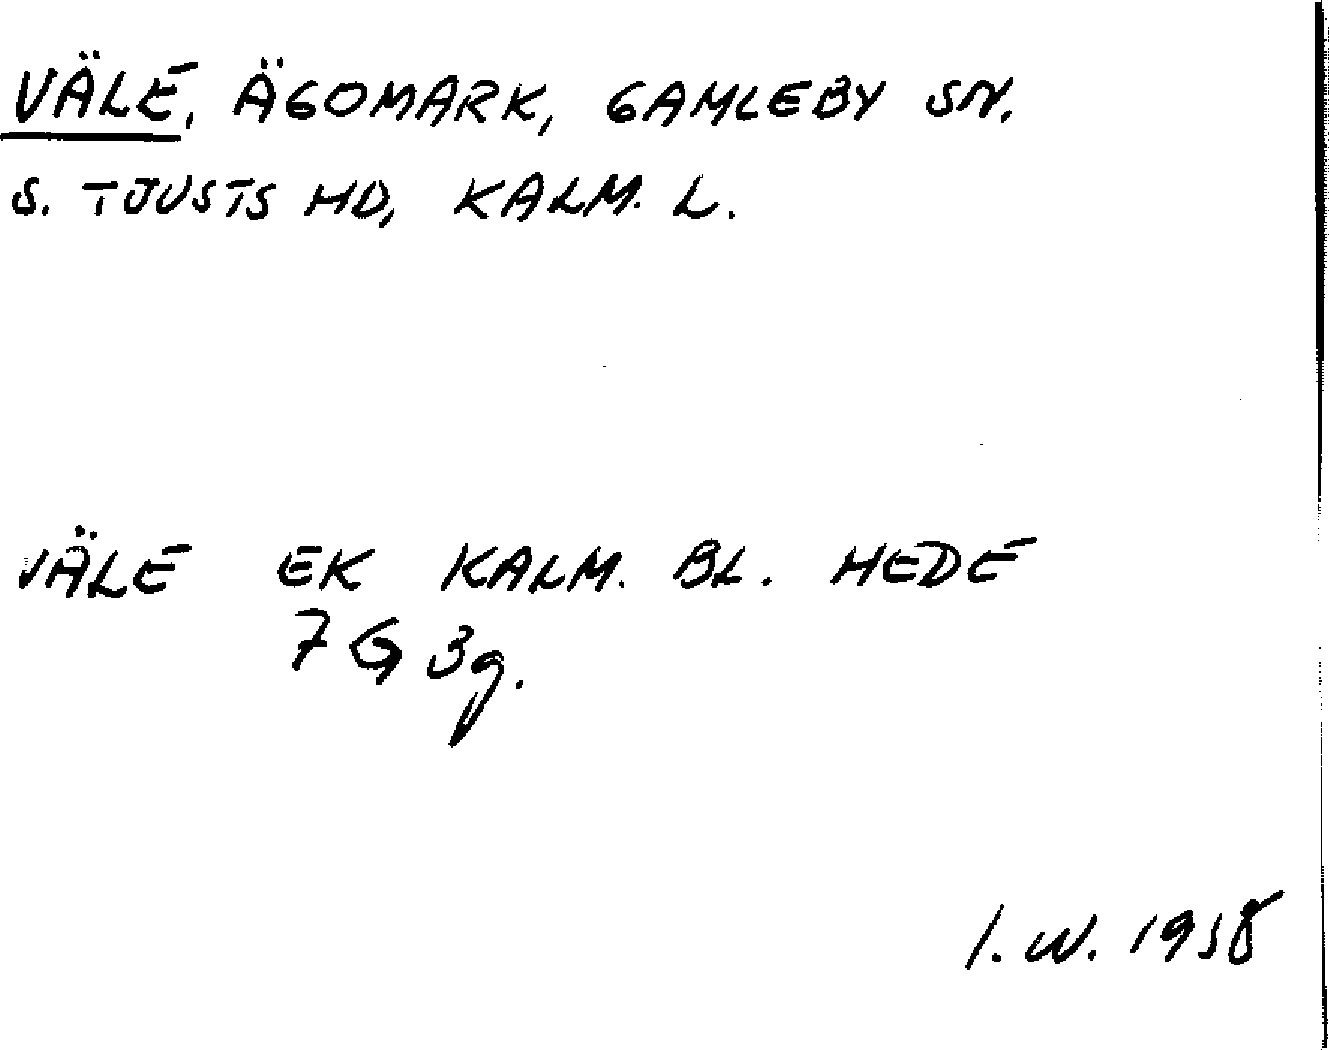 VÄLE, ÄGOMARK, GAMLEBY SN.
S. TJUSTS HD, KALM. L.
VÄLE EK KALM. BL. HEDE
7G 3g.
I. W. 1958